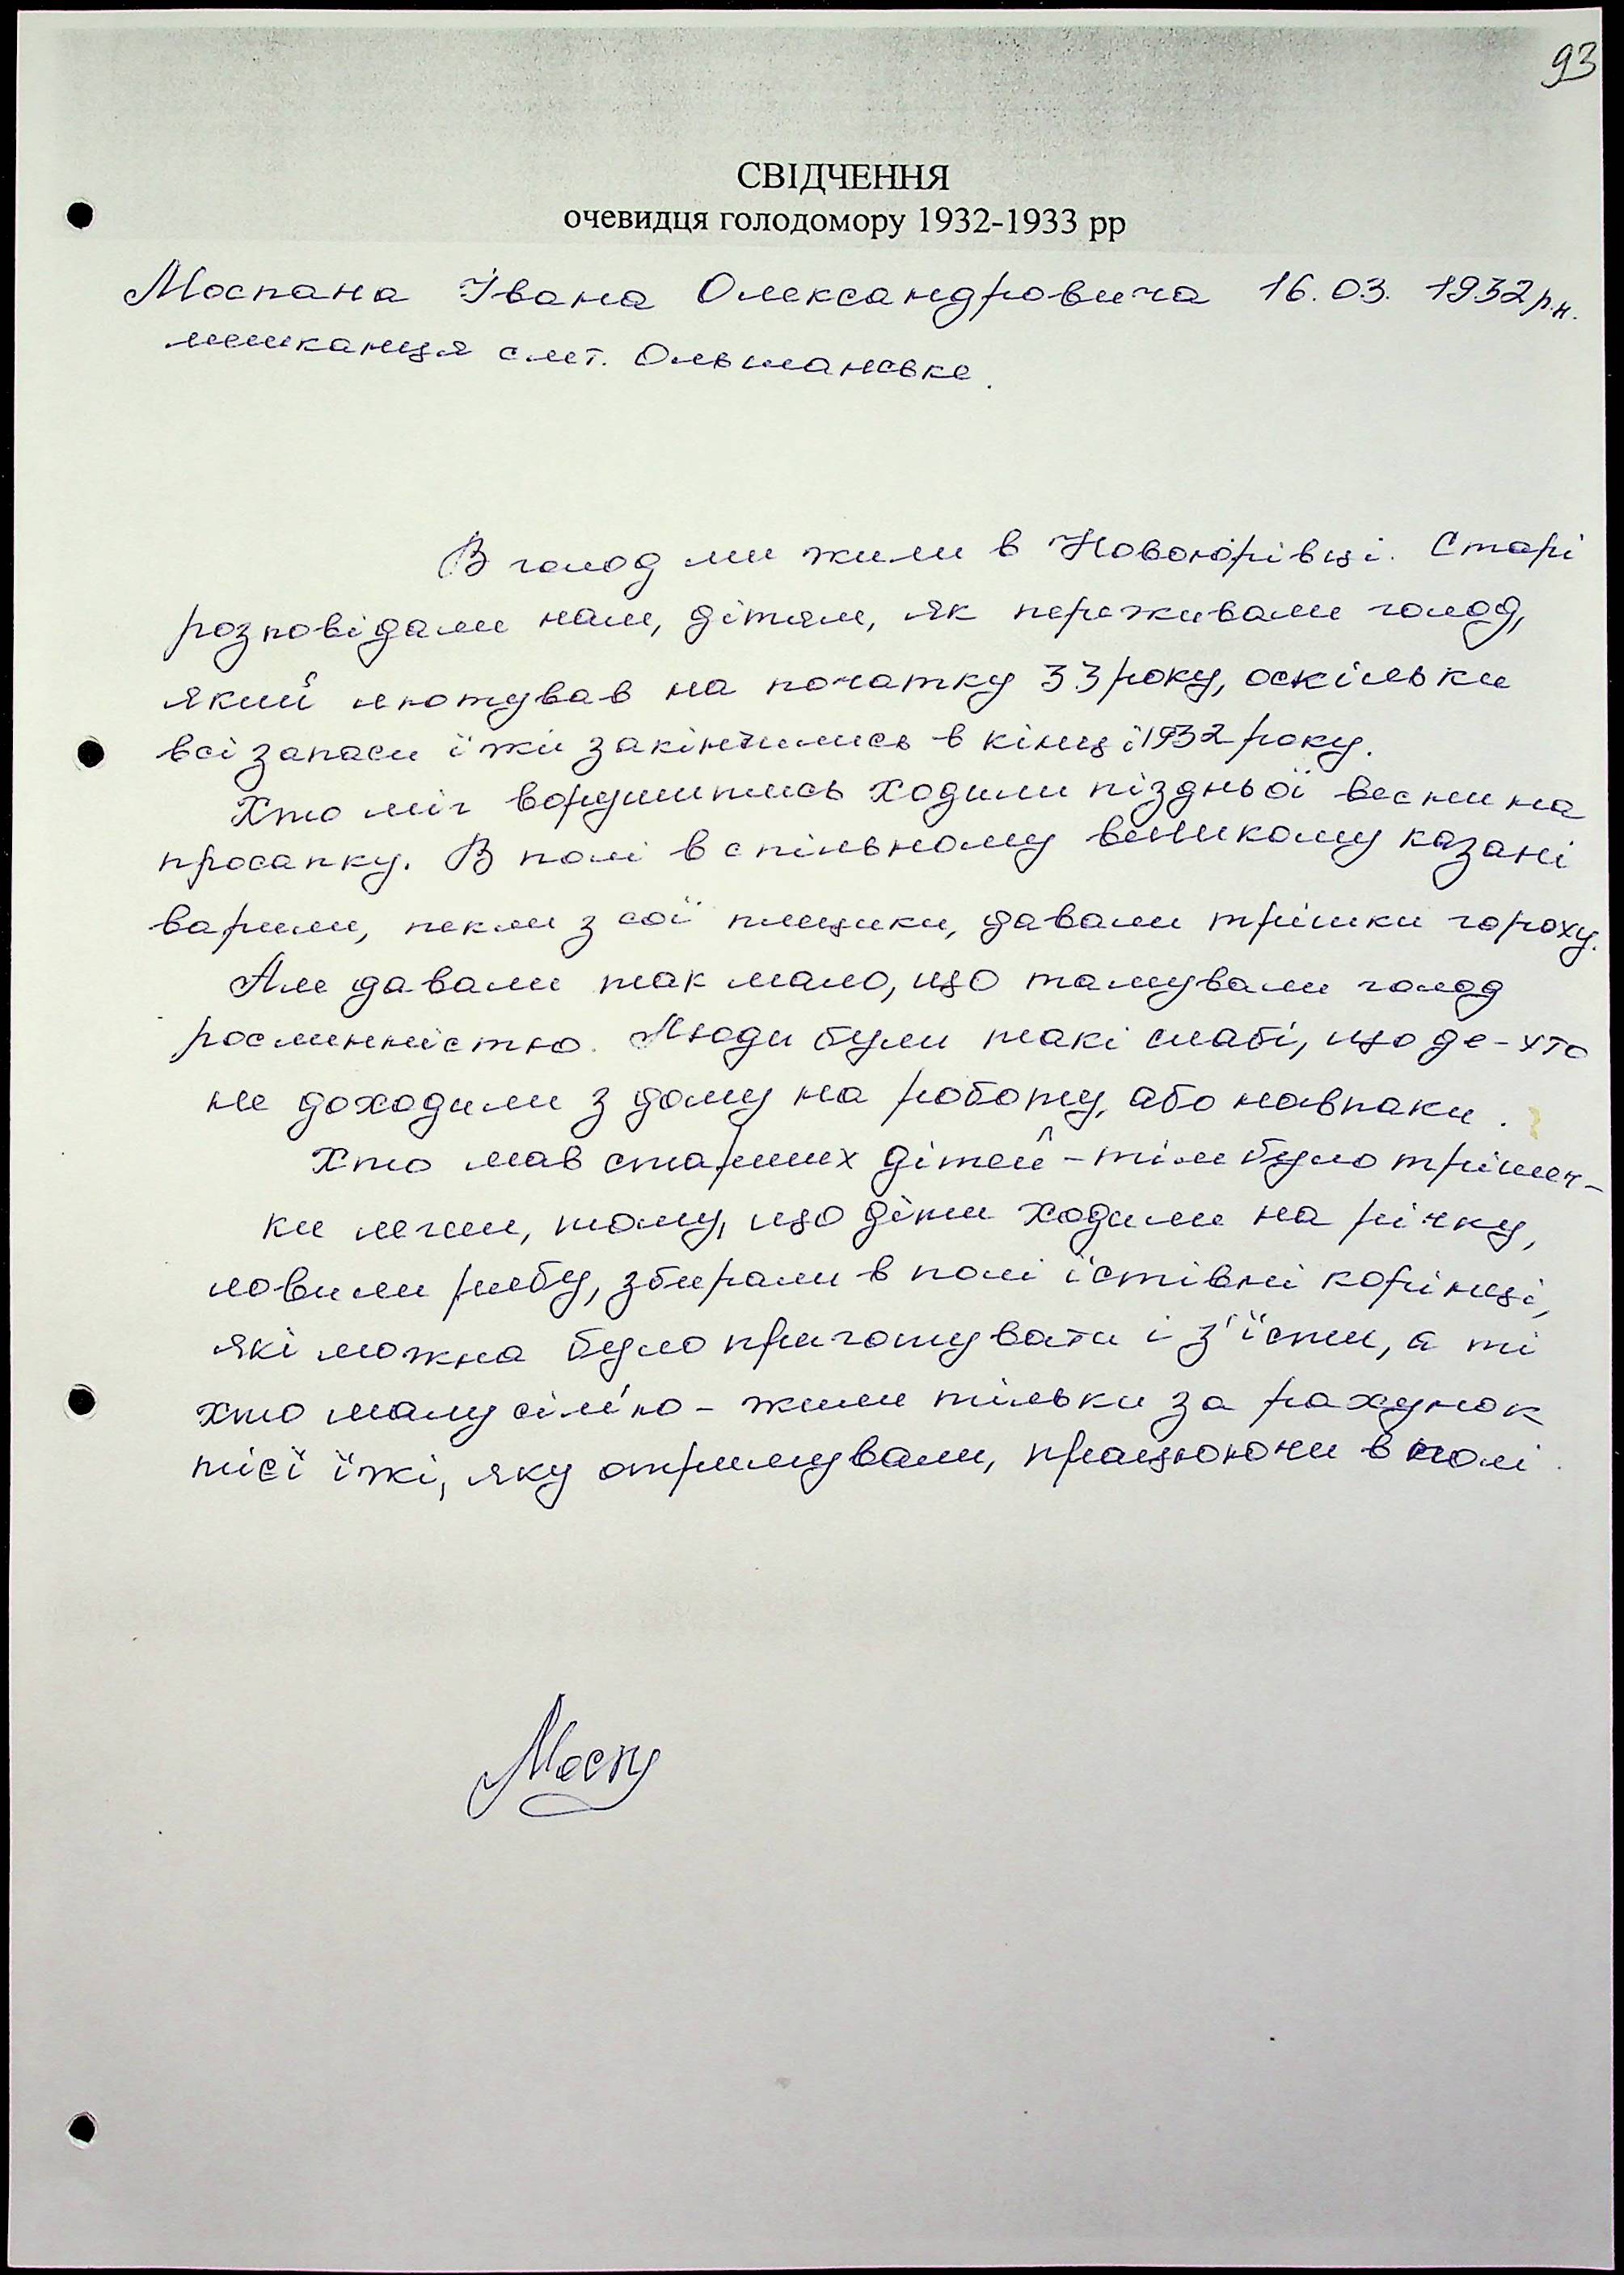 93
СВІДЧЕННЯ
очевидця голодомору 1932-1933 рр
Моспана Івана Олександровича 16.03.1932 р.н.
мешканця смт. Ольшанське.
В голод ми жили в Новоюрівці. Старі
розповідали нам, дітям, як переживали голод,
який лютував на початку 33 року, оскільки
всі запаси їжи закінчились в кінці 1932 року.
Хто міг ворушитись ходили піздньої весни на
просапку. В полі в спільному великому казані
варили, пекли з сої плецики, давали трішки гороху.
Але давали так мало, що тамували голод
рослинністю. Люди були такі слабі, що де-хто
не доходили з дому на роботу, або навпаки.
Хто мав старших дітей - тім було трішеч-
ки легш, тому, що діти ходили на річку,
ловили рибу, збирали в полі їстівні корінці,
які можна було приготувати і з'їсти, а ті
хто малу сім'ю - жили тільки за рахунок
тієї їжі, яку отримували, працюючи в полі.
Мосп